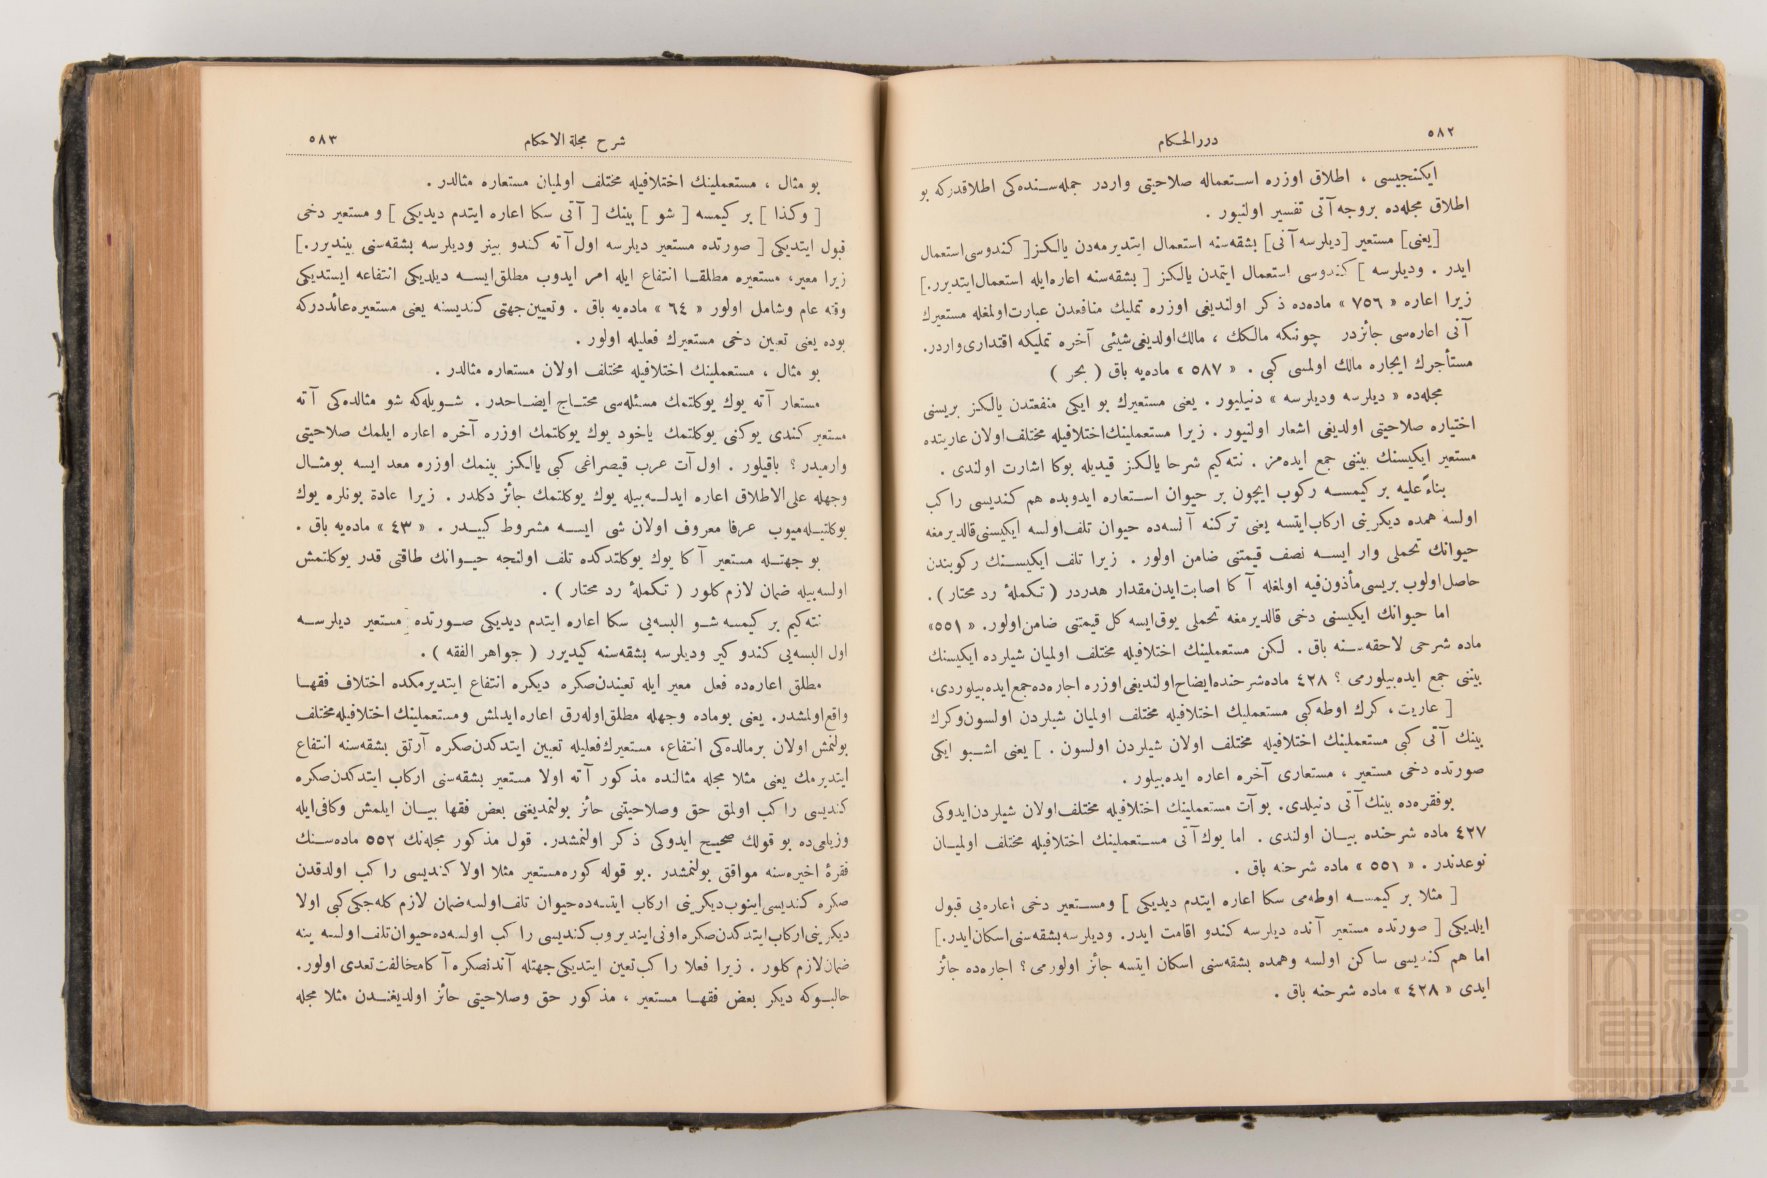 ٥٨٢
دررالحكام
ايكنجيسى ، اطلاق اوزره استعماله صلاحيتى واردر جمله‌سنده‌كى اطلاقدركه بو
اطلاق مجله‌ده بروجه آتى تفسير اولنيور .
[يعنى] مستعير [ديلرسه آنى] بشقه‌سنه استعمال ايتديرمه‌دن يالكز[ كندوسى استعمال
ايدر . وديلرسه ] كندوسى استعمال ايتمدن يالكز [ بشقه‌سنه اعاره‌ايله استعمال‌ايتديرر.]
زيرا اعاره « ٧٥٦ » ماده‌ده ذكر اولنديغى اوزره تمليك منافعدن عبارت‌اولمغله مستعيرك
آنى اعاره‌سى جائزدر چونكه مالكك ، مالك‌اولديغى‌شيئى آخره تمليكه اقتدارى‌واردر.
مستأجرك ايجاره مالك اولمسى كبى . « ٥٨٧ » ماده‌يه باق ( بحر )
مجله‌ده « ديلرسه وديلرسه » دنيليور . يعنى مستعيرك بو ايكى منفعتدن يالكز بريسنى
اختياره صلاحيتى اولديغى اشعار اولنيور . زيرا مستعملينك‌اختلافيله مختلف‌اولان عاريتده
مستعير ايكيسنك بيننى جمع ايده‌مز . نته‌كيم شرحا يالكز قيديله بوكا اشارت اولندى .
بناءً عليه بر كيمسه ركوب ايچون بر حيوان استعاره ايدوبده هم كنديسى راكب
اولسه همده ديكرينى اركاب‌ايتسه يعنى تركنه آلسه‌ده حيوان تلف‌اولسه ايكيسنى‌قالديرمغه
حيوانك تحملى وار ايسه نصف قيمتنى ضامن اولور . زيرا تلف ايكيسنك ركوبندن
حاصل‌اولوب بريسى‌مأذون‌فيه اولمغله آكا اصابت‌ايدن‌مقدار هدردر ( تكملهٔ رد محتار ) .
اما حيوانك ايكيسنى دخى قالديرمغه تحملى يوق‌ايسه كل قيمتنى ضامن‌اولور. « ٥٥١»
ماده شرحى لاحقه‌سنه باق . لكن مستعملينك اختلافيله مختلف اولميان شيلرده ايكيسنك
بيننى جمع ايده‌بيلورمى ؟ ٤٢٨ ماده‌شرحنده‌ايضاح‌اولنديغى‌اوزره اجاره‌ده‌جمع‌ايده‌بيلوردى،
[ عاريت، كرك اوطه‌كبى مستعملينك اختلافيله مختلف اولميان شيلردن اولسون‌وكرك
بينك آتى كبى مستعملينك اختلافيله مختلف اولان شيلردن اولسون . ] يعنى اشبو ايكى
صورتده دخى مستعير ، مستعارى آخره اعاره ايده‌بيلور .
بوفقره‌ده بينك‌آتى دنيلدى. بوآت مستعملينك اختلافيله مختلف‌اولان شيلردن‌ايدوكى
٤٢٧ ماده شرحنده بيان اولندى . اما يوك‌آتى مستعملينك اختلافيله مختلف اولميان
نوعدندر . « ٥٥١ » ماده شرحنه باق .
[ مثلا بر كيمسه اوطه‌مى سكا اعاره ايتدم ديديكى ] ومستعير دخى اعاره‌يى قبول
ايلديكى [ صورتده مستعير آنده ديلرسه كندو اقامت ايدر. وديلرسه‌بشقه‌سنى‌اسكان‌ايدر.]
اما هم كنديسى ساكن اولسه وهمده بشقه‌سنى اسكان ايتسه جائز اولورمى ؟ اجاره‌ده جائز
ايدى « ٤٢٨ » ماده شرحنه باق .
شرح مجلة الاحكام
٥٨٣
بو مثال ، مستعملينك اختلافيله مختلف اولميان مستعاره مثالدر .
[ وكذا ] بر كيمسه [ شو ] بينك [ آتى سكا اعاره ايتدم ديديكى ] ومستعير دخى
قبول ايتديكى [ صورتده مستعير ديلرسه اول‌آته كندو بينر وديلرسه بشقه‌سنى بينديرر.]
زيرا معير، مستعيره مطلقا انتفاع ايله امر ايدوب مطلق‌ايسه ديلديكى انتفاعه ايستديكى
وقته عام وشامل اولور « ٦٤ » ماده‌يه باق . وتعيين‌جهتى كنديسنه يعنى مستعيره‌عائددركه
بوده يعنى تعيين دخى مستعيرك فعليله اولور .
بو مثال ، مستعملينك اختلافيله مختلف اولان مستعاره مثالدر .
مستعار آته يوك يوكلتمك مسئله‌سى محتاج ايضاحدر . شويله‌كه شو مثالده‌كى آته
مستعير كندى يوكنى يوكلتمك ياخود يوك يوكلتمك اوزره آخره اعاره ايلمك صلاحيتى
وارميدر ؟ باقيلور . اول‌آت عرب قيصراغى كبى يالكز بينمك اوزره معد ايسه بومثال
وجهله على‌الاطلاق اعاره ايدلسه‌بيله يوك يوكلتمك جائز دكلدر . زيرا عادة بونلره يوك
يوكلتيله‌ميوب عرفا معروف اولان شى ايسه مشروط كبيدر . « ٤٣ » ماده‌يه باق .
بو جهتله مستعير آكا يوك يوكلتدكده تلف اولنجه حيوانك طاقتى قدر يوكلتمش
اولسه‌بيله ضمان لازم‌كلور ( تكملهٔ رد محتار ) .
نته‌كيم بر كيمسه شو البسه‌يى سكا اعاره ايتدم ديديكى صورتده مستعير ديلرسه
اول البسه‌يى كندو كير وديلرسه بشقه‌سنه كيديرر ( جواهر الفقه ) .
مطلق اعاره‌ده فعل معير ايله تعيندن‌صكره ديكره انتفاع ايتديرمكده اختلاف فقها
واقع‌اولمشدر. يعنى بوماده وجهله مطلق‌اوله‌رق اعاره‌ايدلمش ومستعملينك اختلافيله‌مختلف
بولنمش اولان برمالده‌كى انتفاع، مستعيرك‌فعليله تعيين ايتدكدن‌صكره آرتق بشقه‌سنه انتفاع
ايتديرمك يعنى مثلا مجله مثالنده مذكور آته اولا مستعير بشقه‌سنى اركاب ايتدكدن‌صكره
كنديسى راكب اولمق حق وصلاحيتنى حائز بولنمديغنى بعض فقها بيان ايلمش وكافى‌ايله
وزيلعى‌ده بو قولك صحيح ايدوكى ذكر اولنمشدر. قول مذكور مجله‌نك ٥٥٢ ماده‌سنك
فقرهٔ اخيره‌سنه موافق بولنمشدر .بو قوله كوره‌مستعير مثلا اولا كنديسى راكب اولدقدن
صكره كنديسى‌اينوب‌ديكرينى اركاب ايتسه‌ده‌حيوان تلف‌اولسه‌ضمان لازم كله‌جكى‌كبى اولا
ديكرينى‌اركاب‌ايتدكدن‌صكره‌اونى‌اينديروب‌كنديسى راكب اولسه‌ده‌حيوان‌تلف‌اولسه ينه
ضمان‌لازم‌كلور . زيرا فعلا راكب‌تعين ايتديكى‌جهتله آندنصكره‌آكامخالفت‌تعدى اولور.
حالبوكه ديكر بعض فقها مستعير ، مذكور حق وصلاحيتى حائز اولديغندن مثلا مجله
TOYO BUNKO